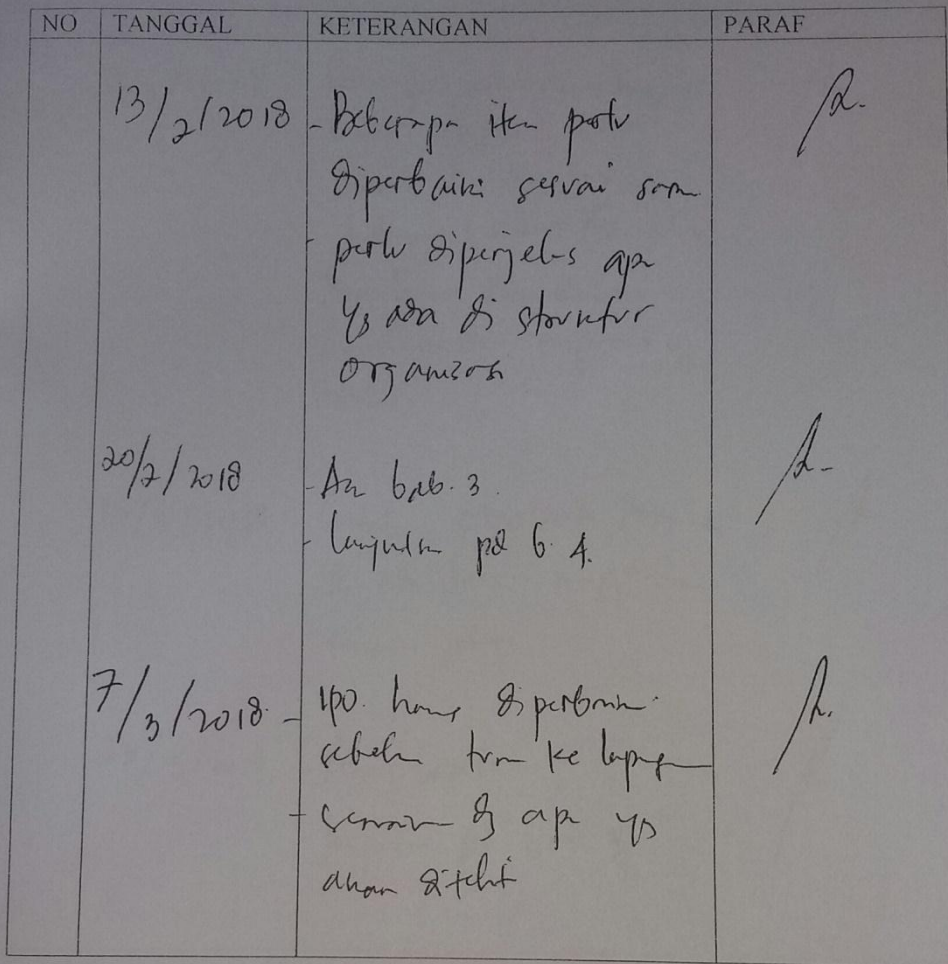 NO TANGGAL KETERANGAN PARAF
13/2/2018 - Beberapa item perlu
diperbaiki sesuai saran
- perlu diperjelas apa
yg ada di struktur
organisasi
20/2/2018 - Acc bab. 3.
- lanjutkan pd b. 4.
7/3/2018 - IPD. harus diperbaiki
sebelum turun ke lapangan
- sesuai dg apa yg
akan diteliti